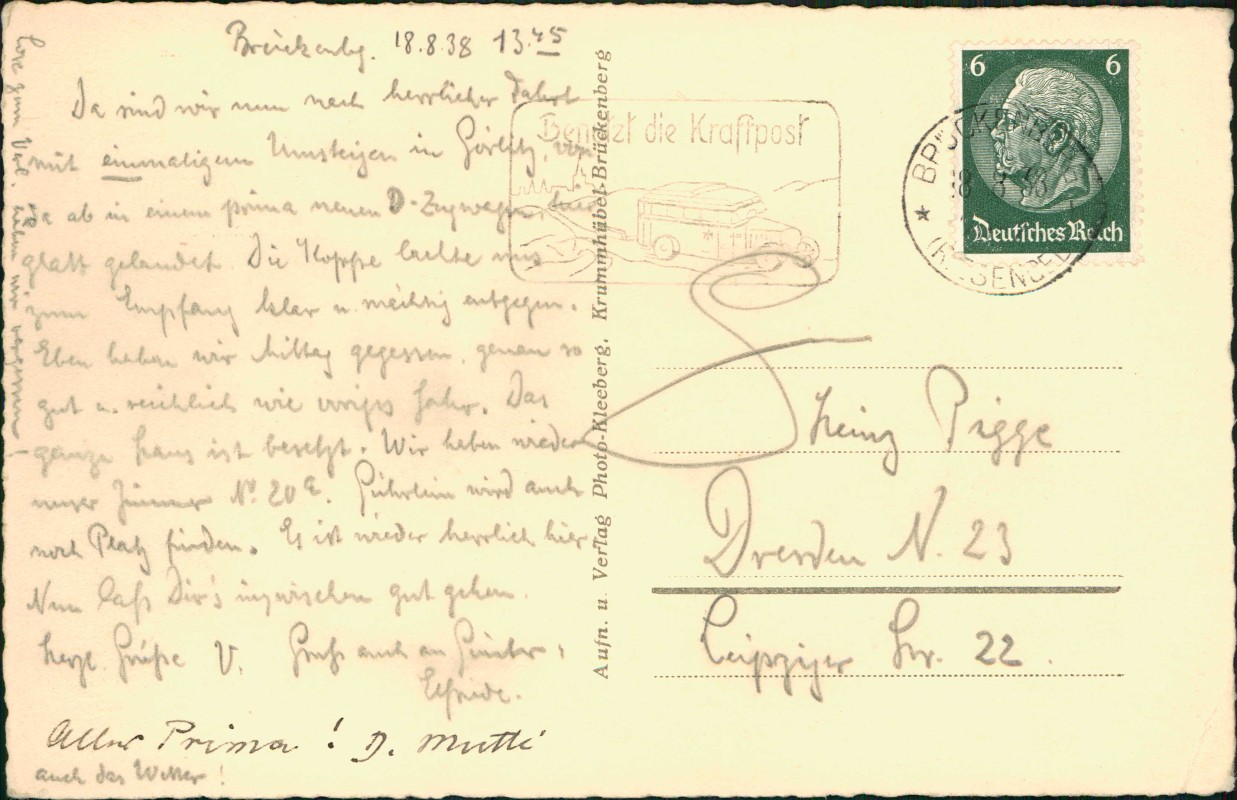 Brückenbg. 18.8.38 13.45
Da sind wir nun nach herrlicher Fahrt
mit einmaligem Umsteigen in Görlitz, von
da ab in einem prima neuen D-Zugwagen, hier
glatt gelandet. Die Koppe lachte uns
zum Empfang klar u. mächtig entgegen.
Eben haben wir Mittag gegessen, genau so
gut u. reichlich wie voriges Jahr. Das
ganze Haus ist besetzt. Wir haben wieder
unser Zimmer No. 20a. wird auch
noch Platz finden. Es ist wieder herrlich hier
Nun laß Dir's inzwischen gut gehen.
Herzl. Grüße V. Gruß auch an Günter,
Elfriede.
Alles Prima! D. Mutti
auch das Wetter!
Aufn. u. Verlag Photo-Kleeberg, Krummhübel-Brückenberg
Benutzt die Kraftpost
6 6
Deutsches Reich
BRÜCKENBERG
18 8 38
(RIESENGEB
Heinz Pigge
Dresden N. 23
Leipziger Str. 22.